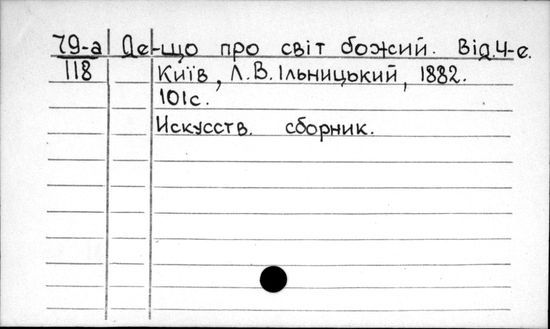 79-а Де-що про світ божий. Від. 4-е.
118 Київ, Л.В. Ільницький, 1882.
101с.
Искусств. сборник.